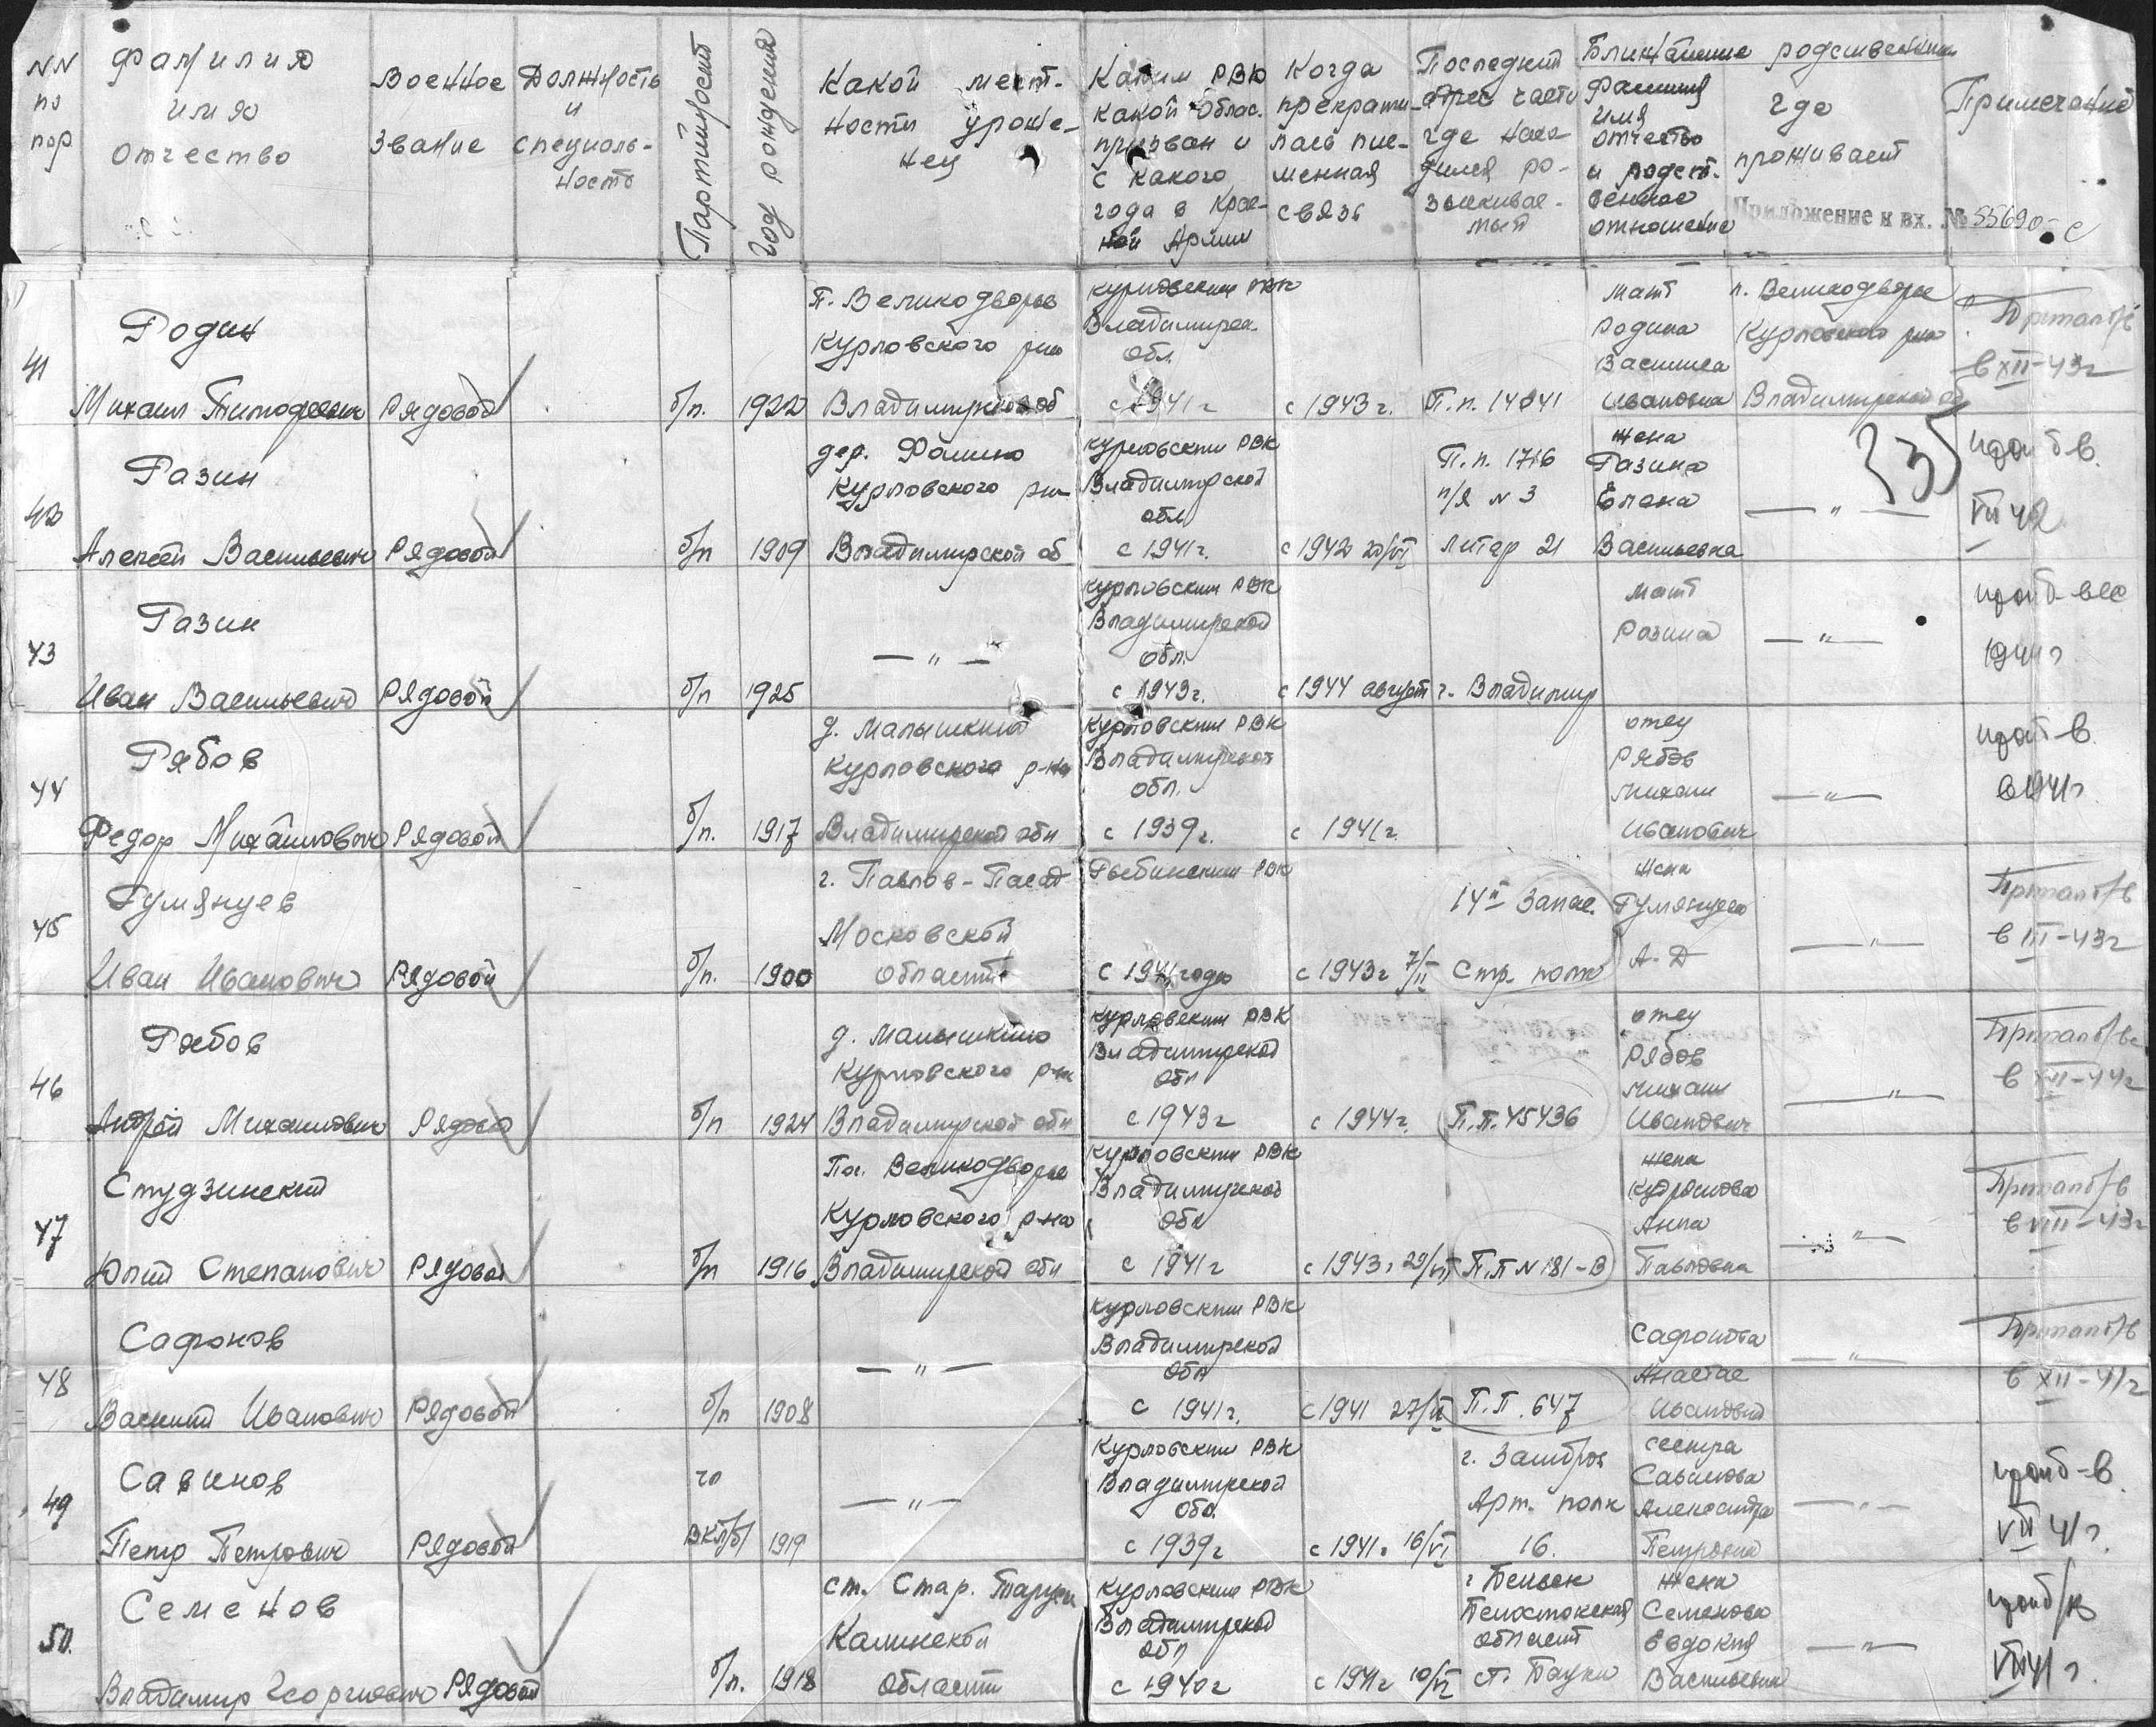 NN по пор
Фамилия имя отчество
Военное звание
Должность и специальность
Партийность
Год рождения
Какой местности уроженец
Каким РВК какой облас. призван и с какого года в Красной Армии
Когда прекратилась письменная связь
Последний адрес части где находился разыскиваемый
Ближайшие родственники
Фамилия имя отчество и родственное отношение
где проживает
Примечание
Приложение к вх. № 55690 с
41 Родин Михаил Тимофеевич Рядовой б/п. 1922 п. Великодворье Курловского р-на Владимирской об Курловским РВК Владимирск. обл. с 1941 г с 1943 г. П.п. 14041 мать Родина Василиса Ивановна п. Великодворье Курловского р-на Владимирской об Пропал б/в в XII-43г
42 Разин Алексей Васильевич Рядовой б/п 1909 дер. Фомино Курловского р-на Владимирской об Курловским РВК Владимирской обл с 1941г. с 1942 20/VI П.п. 1716 п/я N 3 литер 21 жена Разина Елена Васильевна — " — VII 42
43 Разин Иван Васильевич Рядовой б/п 1925 — " — Курловским РВК Владимирской обл. с 1943г. с 1944 август г. Владимир мать Разина — " — 1944 г
44 Рябов Федор Михайлович Рядовой б/п. 1917 д. Малышкино Курловского р-на Владимирской обл Курловским РВК Владимирской обл. с 1939г. с 1941г. отец Рябов Михаил Иванович — " — в 1941г
45 Румянцев Иван Иванович Рядовой б/п. 1900 г. Павлов-Посад Московской области Рыбинским РВК с 1941 года с 1943г 7/II 14й Запас. Стр. полк жена Румянцева А. Д — " — Пропал б/в в III-43г
46 Рябов Андрей Михайлович Рядовой б/п 1924 д. Малышкино Курловского р-на Владимирской обл Курловским РВК Владимирской обл с 1943г с 1944г. П.п. 45436 отец Рябов Михаил Иванович — " — Пропал б/ве в XII-44г
47 Студзинский Юлий Степанович Рядовой б/п 1916 Пос. Великодворье Курловского р-на Владимирской обл Курловским РВК Владимирской обл с 1941г с 1943г П.П N 181-В жена Кудряшова Анна Павловна — " — Пропал б/в в VIII-43г
48 Сафонов Василий Иванович Рядовой б/п 1908 — " — Курловским РВК Владимирской обл с 1941г. с 1941 П.П. 647 Сафонова Анастас Ивановна — " — Пропал б/в в XII-41г
49 Савинов Петр Петрович Рядовой чл ВКП/б/ 1919 — " — Курловским РВК Владимирской обл. с 1939г с 1941г 16/VI г. Замбров Арт. полк 16. сестра Савинова Александра Петровна — " — VII 41г.
50. Семенов Владимир Георгиевич Рядовой б/п. 1918 ст. Стар. Калинской области Курловским РВК Владимирской обл с 1940г с 1941г 10/VI г Бельск Белостокской область жена Семенова Евдокия Васильевна — " — VIII 41 г